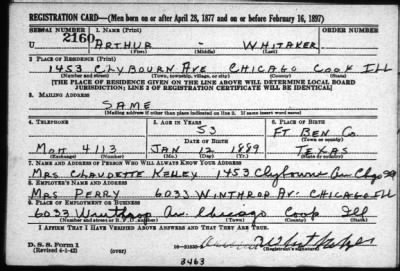 REGISTRATION CARD—(Men born on or after April 28, 1877 and on or before February 16, 1897)
SERIAL NUMBER 1. NAME (Print) ORDER NUMBER
U 2160 ARTHUR - WHITAKER
(First) (Middle) (Last)
2. PLACE OF RESIDENCE (Print)
1453 CLYBOURN AVE CHICAGO COOK ILL
(Number and street) (Town, township, village, or city) (County) (State)
[THE PLACE OF RESIDENCE GIVEN ON THE LINE ABOVE WILL DETERMINE LOCAL BOARD
JURISDICTION; LINE 2 OF REGISTRATION CERTIFICATE WILL BE IDENTICAL]
3. MAILING ADDRESS
SAME
(Mailing address if other than place indicated on line 2. If same insert word same)
4. TELEPHONE 5. AGE IN YEARS 6. PLACE OF BIRTH
53 FT BEN CO
DATE OF BIRTH (Town or county)
MOH 4113 JAN 12 1889 TEXAS
(Exchange) (Number) (Mo.) (Day) (Yr.) (State or country)
7. NAME AND ADDRESS OF PERSON WHO WILL ALWAYS KNOW YOUR ADDRESS
MRS CLAUDETTE KELLEY 1453 Clybourn Av Chgo Ill
8. EMPLOYER'S NAME AND ADDRESS
MRS PERRY 6033 WINTHROP AV. CHICAGO ILL
9. PLACE OF EMPLOYMENT OR BUSINESS
6033 Winthrop Av. Chicago Cook Ill
(Number and street or R. F. D. number) (Town) (County) (State)
I AFFIRM THAT I HAVE VERIFIED ABOVE ANSWERS AND THAT THEY ARE TRUE.
D. S. S. Form 1
(Revised 4-1-42) (over) (Registrant's signature)
3463